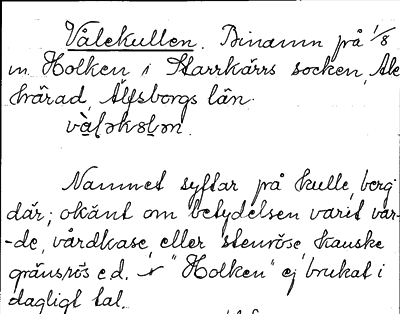 Vålekullen. Binamn på 1/8
m. Holken i Starrkärrs socken, Ale
härad, Älfsborgs län.
Namnet syftar på kulle, berg
där; okänt om betydelsen varit var-
-de, vårdkase, eller stenröse, kanske
gränsrös e.d. "Holken" ej brukat i
dagligt tal.